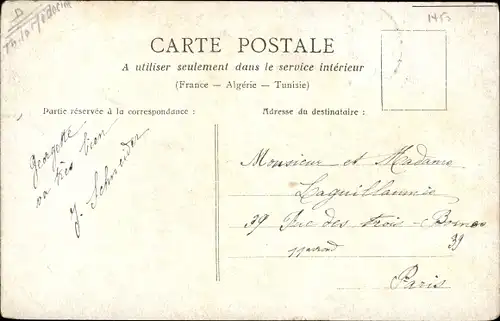 1453
CARTE POSTALE
A utiliser seulement dans le service intérieur
(France — Algérie — Tunisie)
Partie réservée à la correspondance :
Adresse du destinataire :
Georgette
va très bien
J. Schneider
Monsieur et Madame
Laguillaumie
39 Rue des trois - Bornes
39
Paris